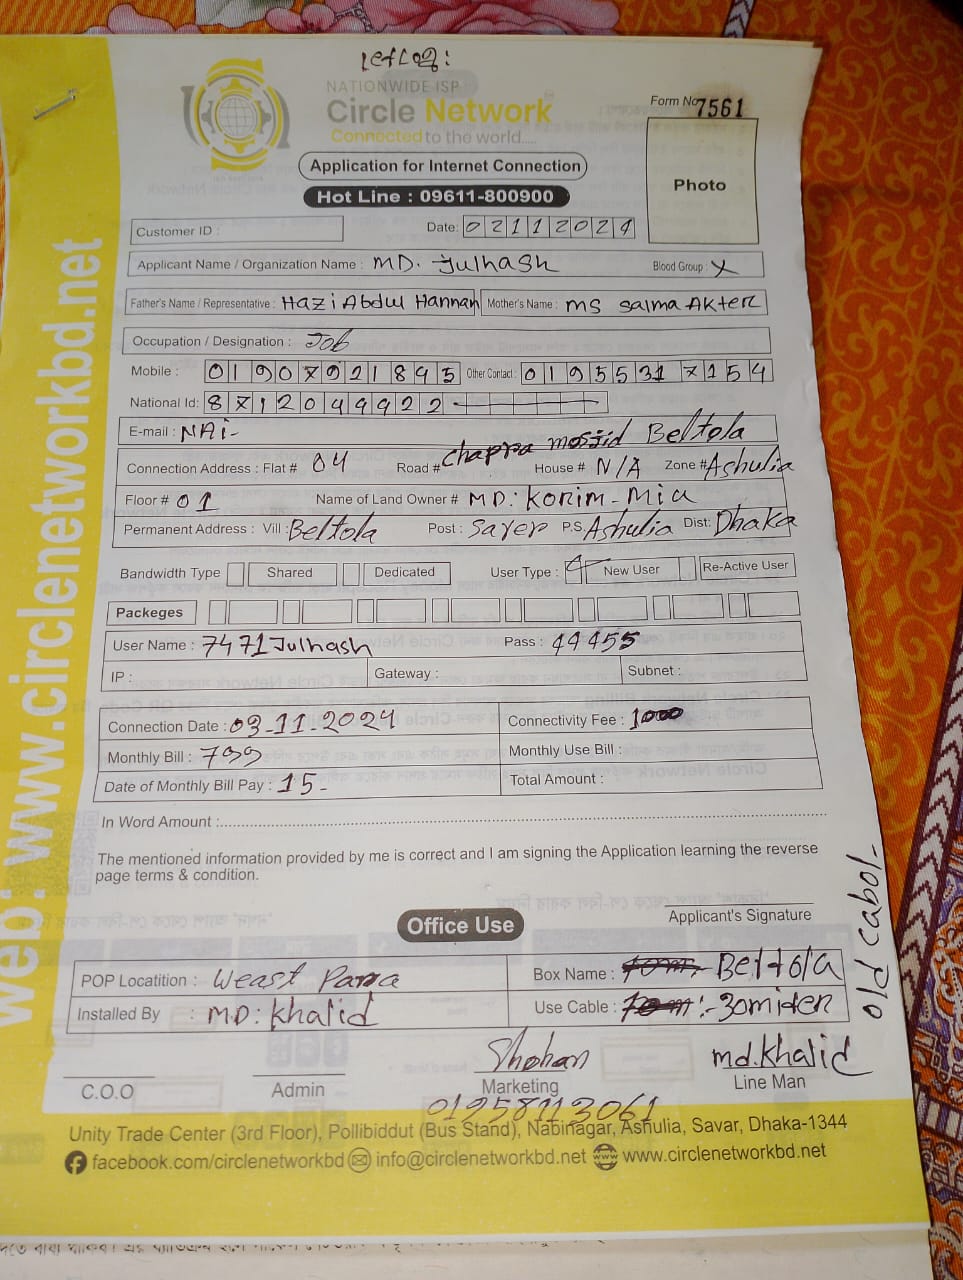 NATIONWIDE ISP
Circle Network
Connected to the world.....
Form No 7561
Application for Internet Connection
Hot Line : 09611-800900
Photo
Customer ID :
Date: 02112024
Applicant Name / Organization Name : MD. Julhash Blood Group : X
Father's Name / Representative : Hazi Abdul Hannan Mother's Name : MS Salma AKter
Occupation / Designation : Job
Mobile : 01907921845 Other Contact : 01955317154
National Id: 8712049922
E-mail : NAi-
Connection Address : Flat # 04 Road # chapra mosjid Beltola House # N/A Zone # Ashulia
Floor # 01 Name of Land Owner # MD: Korim-Mia
Permanent Address : Vill : Beltola Post : Saver P.S. Ashulia Dist: Dhaka
Bandwidth Type Shared Dedicated User Type : New User Re-Active User
Packeges
User Name : 7471Julhash Pass : 44455
IP : Gateway : Subnet :
Connection Date : 03-11-2024 Connectivity Fee : 1000
Monthly Bill : 799 Monthly Use Bill :
Date of Monthly Bill Pay : 15- Total Amount :
In Word Amount :
The mentioned information provided by me is correct and I am signing the Application learning the reverse
page terms & condition.
Applicant's Signature
Office Use
POP Locatition : Weast Para Box Name : Beltola
Installed By : M.D: Khalid Use Cable : :-30miter
old cabol-
Shohan md.khalid
C.O.O Admin Marketing Line Man
Unity Trade Center (3rd Floor), Pollibiddut (Bus Stand), Nabinagar, Ashulia, Savar, Dhaka-1344
facebook.com/circlenetworkbd info@circlenetworkbd.net www.circlenetworkbd.net
web: www.circlenetworkbd.net